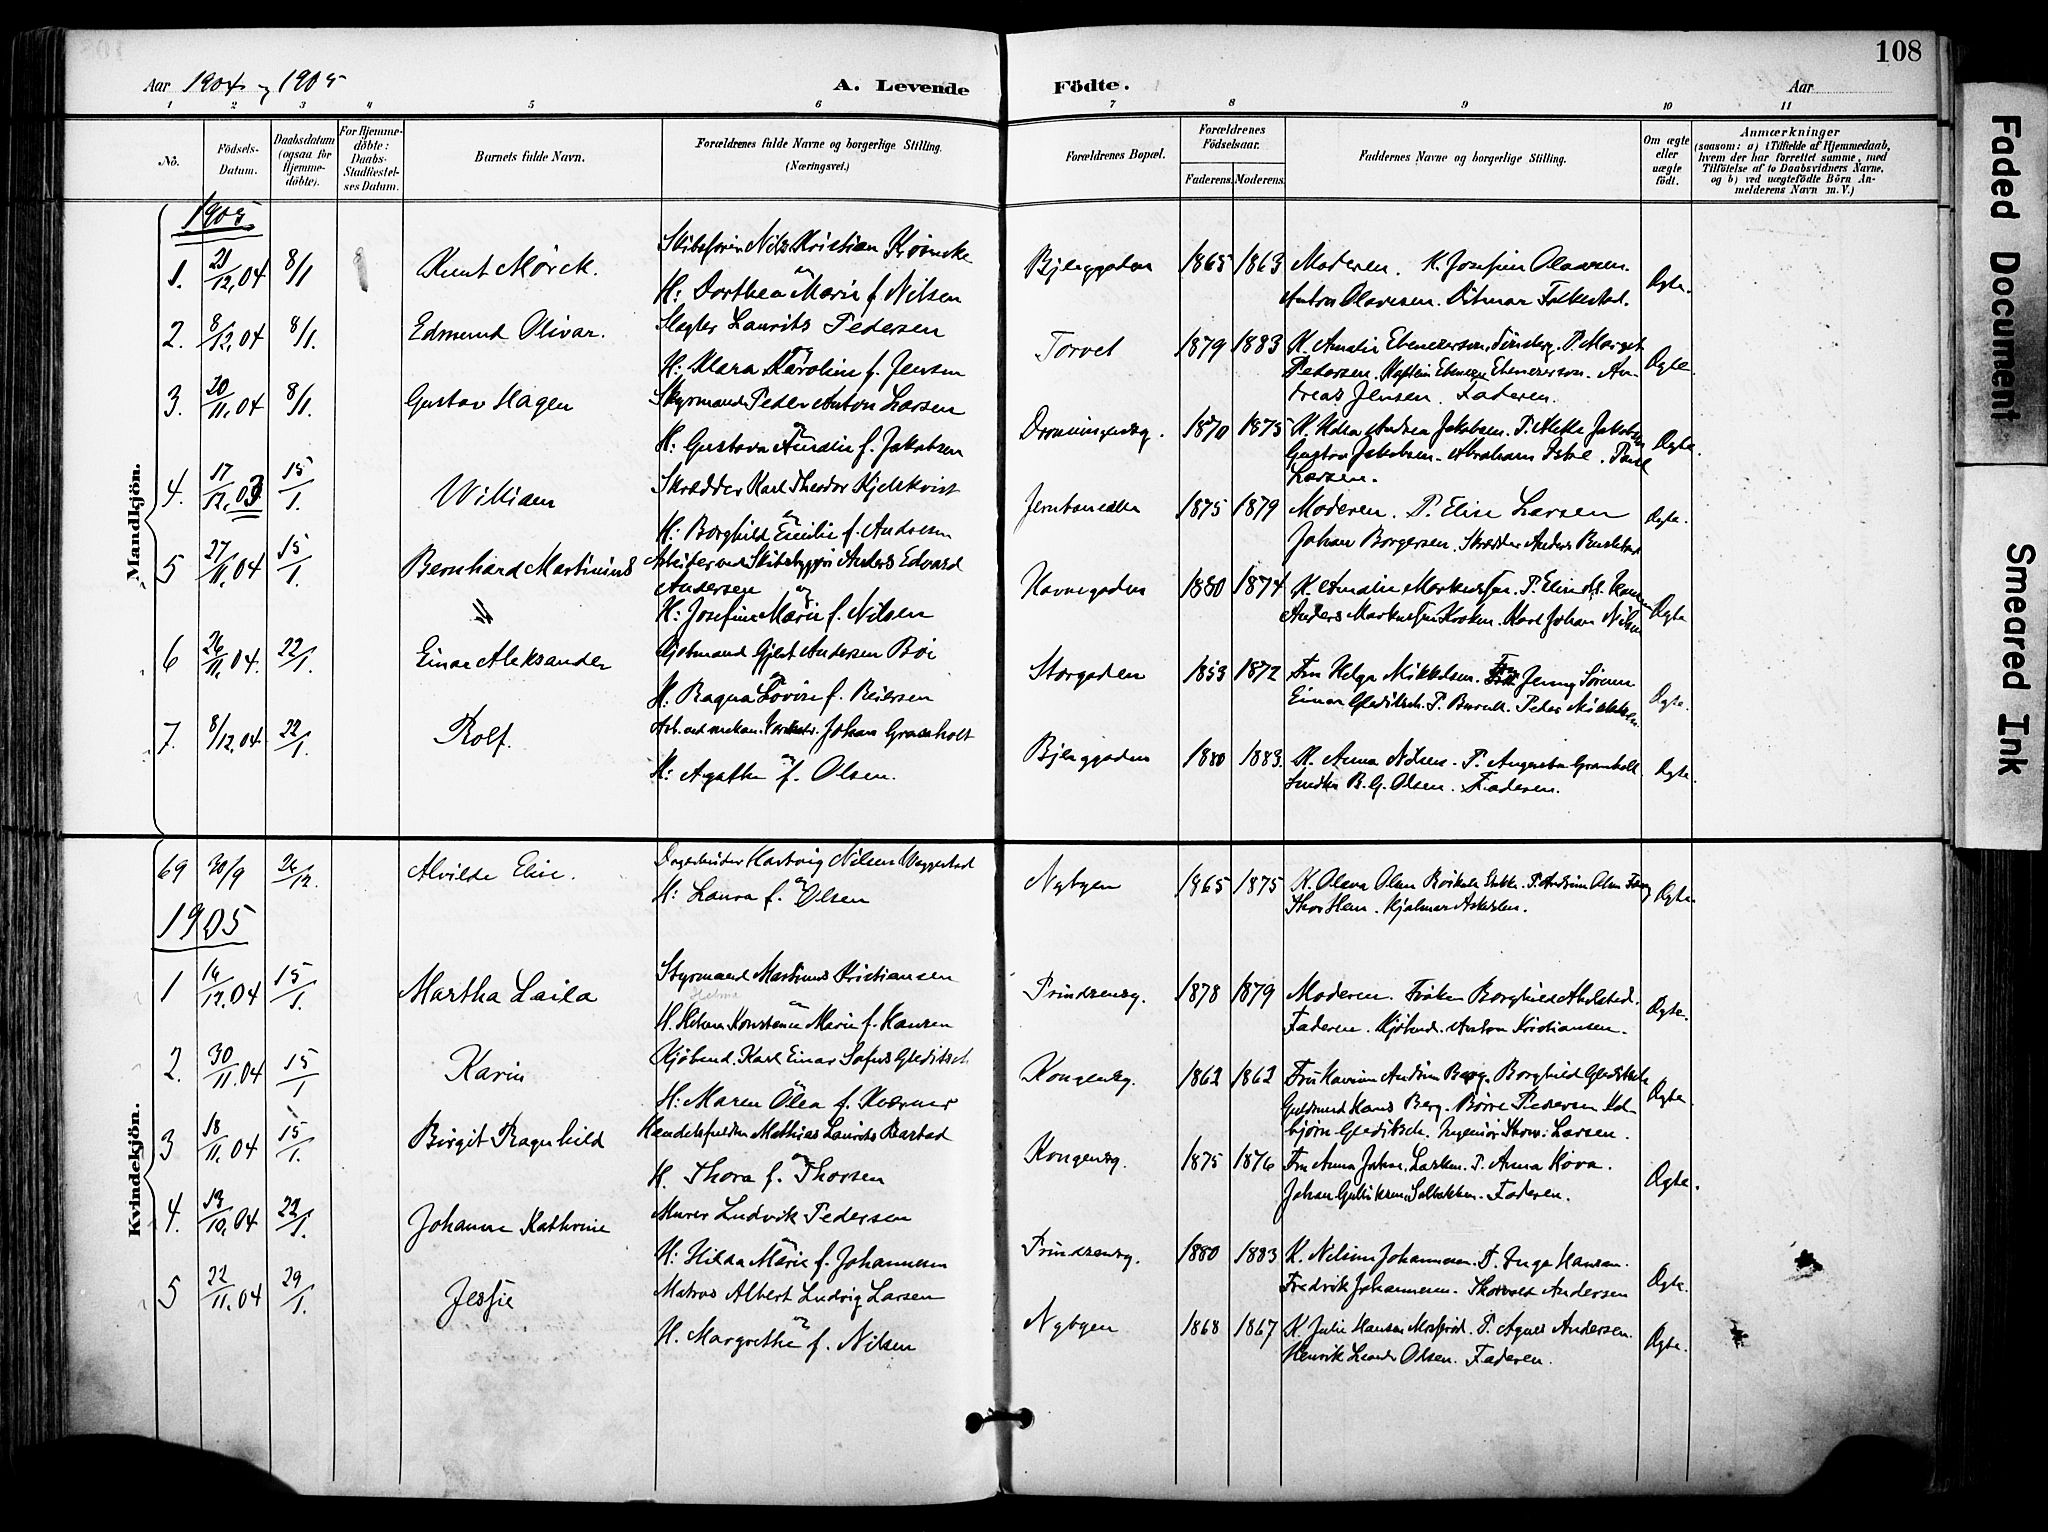 108
Aar 1904 og 1905
A. Levende Födte.
Aar
1 2 3 4 5 6 7 8 9 10 11
No.
Födsels-Datum.
Daabsdatum (ogsaa for Hjemmedöbte).
For Hjemmedöbte: Daabs-Stadfestelses Datum.
Barnets fulde Navn.
Forældrenes fulde Navne og borgerlige Stilling. (Næringsvei.)
Forældrenes Bopæl.
Forældrenes Födselsaar.
Faderens. Moderens.
Faddernes Navne og borgerlige Stilling.
Om ægte eller uægte födt.
Anmærkninger
(saasom: a) i Tilfælde af Hjemmedaab, hvem der har forrettet samme, med Tilföielse af to Daabsvidners Navne, og b) ved uægtefödte Börn Anmelderens Navn m. V.)
Mandkjön.
1905
1. 21/12.04 8/1 Knut Mörck. Nils Kristian
H: Dorthea Marie f. Nilsen
Bjerggaden 1865 1863 Moderen. K. Josefine Olavesen.
Anton Olavesen. Ditmar Falkestad. Ægte.
2. 8/12.04 8/1. Edmund Olivar. Slagter Laurits Pedersen
og
H: Klara Karoline f. Jensen
Torvet 1879 1883 K. Amalie Ebenezersen, Tönsberg. P. Margit
Pedersen. Kaptein Ebenezer Ebenezersen. An-
dreas Jensen. Faderen. Ægte.
3. 20/11.04 8/1. Gustav Hagen Styrmand Peder Anton Larsen
og
H: Gustava Amalie f. Jakobsen
Dronningensg. 1870 1875 K. Andrea Jakobsen. P. Jakobsen
Gustav Jakobsen. Abraham. Paul
Larsen. Ægte.
4. 17/12.03 15/1. William Skrædder Karl Theodor Kjellkvist
og
H: Borghild Emilie f. Andresen
1875 1879 Moderen. P. Elise Larsen
Johan Borgersen. Skrædder Anders Ægte.
5 27/11.04 15/1. Bernhard Martinius Arbeider ved Skibsbyggeri Anders Edvard
Andersen
og
H: Josefine Marie f. Nilsen
Havnegaden 1880 1874 K. Amalie Markussen. P.
Anders Markussen. Karl Johan Nilsen Ægte
6 26/11.04. 22/1. Einar Aleksander Gjert Andersen Bøe
og
H. Ragna Lovise f. Reiersen
Storgaden 1853 1872 Fru Helga Mikkelsen. Jenny Sörensen
Einar Gleditsch. P. Peder Mikkelsen Ægte.
7. 8/12.04. 22/1. Rolf. Arb. ved mekan. Johan Gramholt
og
H: Agathe f. Olsen.
Bjerggaden 1880 1883. K. Anna Nilsen. P. Gramholt
B. G. Olsen. Faderen. Ægte.
Kvindekjön.
69 30/9 26/12. Alvilde Elise. Hartvig Nilsen Veggestad
og
H: Laura f. Olsen
Nybyen 1865 1875 K. Olava Olsen
Hjalmar Askilsen. Ægte.
1905
1 16/12.04 15/1. Martha Laila Styrmand Martinus Kristiansen
Helma
og
H. Konstance Marie f. Hansen
Prindsensg. 1878 1879 Moderen. Fröken Borghild
Faderen. Kjöbmd. Anton Kristiansen. Ægte.
2. 30/11.04 15/1 Karin Kjöbmd. Karl Einar Sofus Gleditsch
og
H: Maren Olea f. Kværner
Kongensg. 1862 1862 Fru Andrine Berg. Borghild Gleditsch
Guldsmed Hans Berg. Børre Pedersen Kol-
bjørn Gleditsch. Ingeniör Larsen. Ægte.
3 18/11.04 15/1. Birgit Ragnhild Mathias Laurits Bastad
og
H. Thora f. Thorsen
Kongensg. 1875 1876 Fru Anna Larsen. P. Anna
Johan Gulliksen, Solbakken. Faderen. Ægte.
4. 13/10.04 22/1. Johanne Kathrine Murer Ludvik Pedersen
og
H: Hilda Marie f. Johannesen
Prindsensg. 1880 1883 K. Johannesen. P. Inga Hansen.
Fredrik Johannesen. Thorvald Andersen Ægte.
5 22/11.04 29/1. Jessie Matros Albert Ludvig Larsen
og
H. Margrethe f. Nilsen
Nybyen 1868 1867 K. Julie Hansen P. Agnes Andersen.
Henrik Olsen. Faderen. Ægte.
Faded Document
Smeared Ink